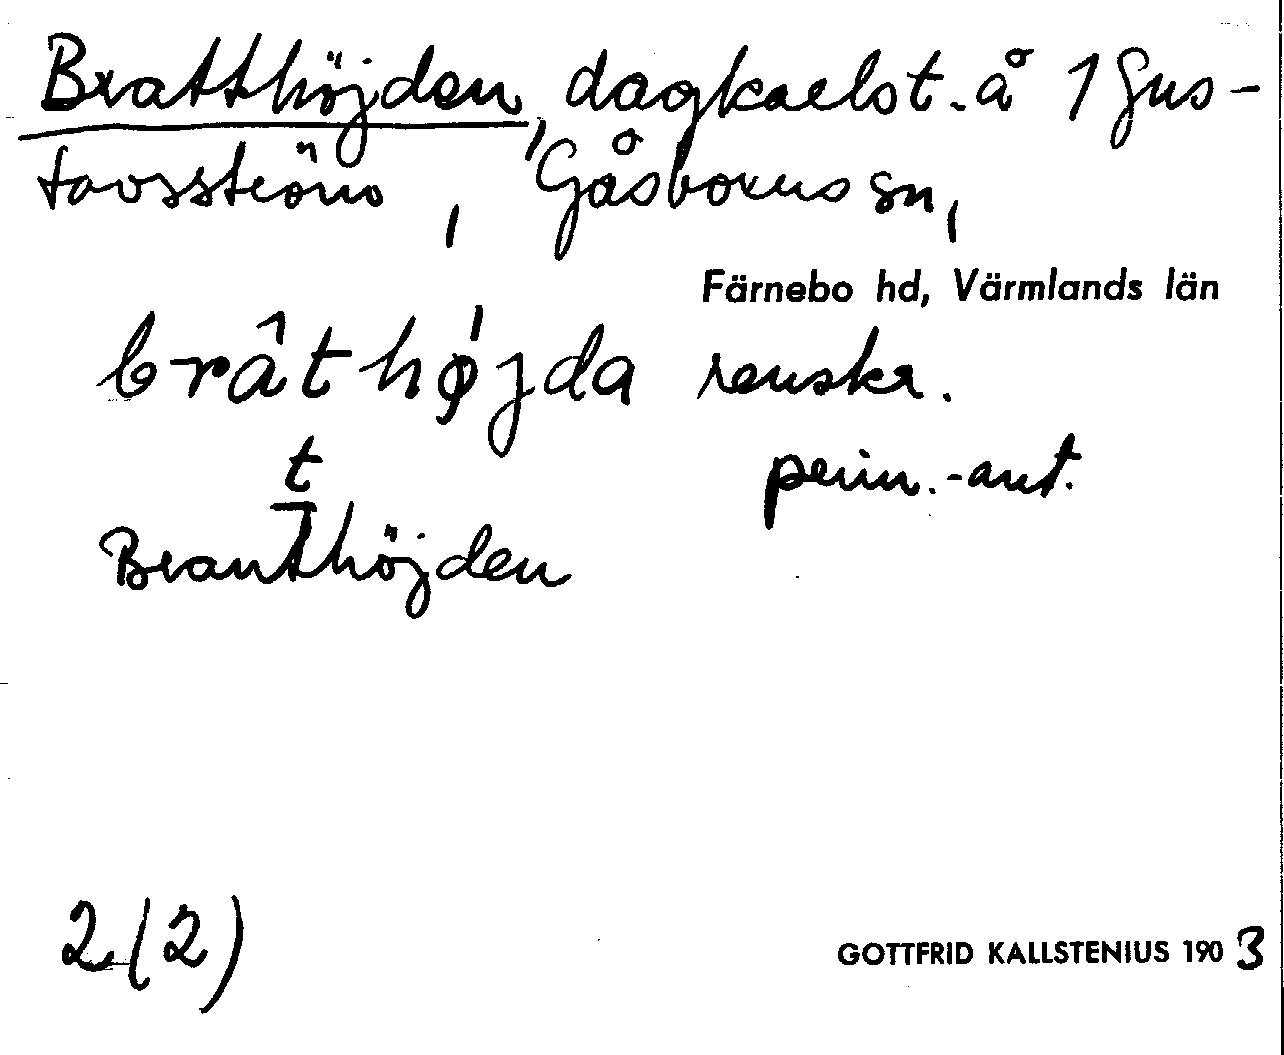 Bratthöjden, dagkarlst. å 1 Gus-
tavsström, Gåsborns sn,
Färnebo hd, Värmlands län
brât hǿjda renskr.
t
perm.-ant.
Branthöjden
2 (2)
GOTTFRID KALLSTENIUS 1903